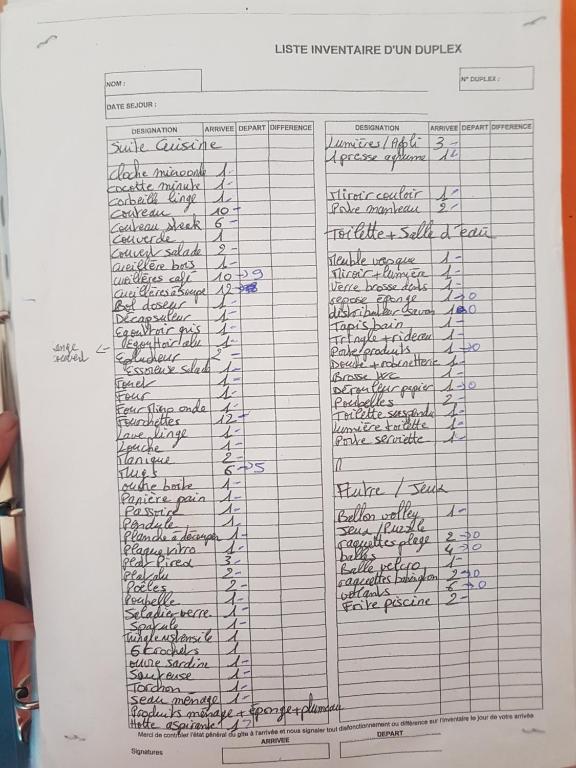 LISTE INVENTAIRE D'UN DUPLEX
NOM :
N° DUPLEX :
DATE SEJOUR :
DESIGNATION ARRIVEE DEPART DIFFERENCE
Suite Cuisine
cloche minoonde 1-
cocotte minute 1-
Corbeille linge 1-
Couteau 10-
Couteau steak 6-
Couverde 1
Couvert salade 2-
cueillère bois 1-
cueillères café 10→9
cueillères à soupe 12→
Bol doseur 1-
Décapsuleur 1-
Egouttoir gris 1-
Egouttoir alu 1-
Eplucheur 2-
Essoreuse salade 1-
Fouet 1-
Four 1-
Four Mino onde 1-
Fourchettes 12-
Lave linge 1-
Louche 1-
Manique 2-
Mugs 6→5
ouvre boite 1-
Panière pain 1-
Passoire 1-
Pendule 1-
Planche à découper 1-
Plaque vitro 1-
Plat Pirex 3-
Plat alu 2-
Poêles 2-
Poubelle 1-
Saladier verre 1-
Spatule 1-
Tringle ustensile 1
6 Crochets 1
ouvre sardine 1-
Sauteuse 1-
Torchon 1-
Seau ménage 1-
Produits ménage + éponge + plumeau
Hotte aspirante 1-
DESIGNATION ARRIVEE DEPART DIFFERENCE
Lumières/Appli 3-
1 presse agrume 1-
Miroir couloir 1-
Porte manteau 2-
Toilette + Salle d'eau
Meuble vasque 1-
Miroir + lumière 1-
Verre brosse dents 1-
repose éponge 1→0
distributeur savon 1→0
Tapis bain 1-
Tringle + rideau 1-
Porte produits 1→0
Douche + robinetterie 1-
Brosse WC 1-
Dérouleur papier 1→0
Poubelles 2-
Toilette suspendu 1-
lumière toilette 1-
Porte serviette 1-
Autre / Jeux
Ballon volley 1-
Jeux / Puzzle
raquettes plage 2→0
balles 4→0
Balle velcro 1-
raquettes babington 2→0
volants 6→0
Frite piscine 2-
Merci de contrôler l'état général du gîte à l'arrivée et nous signaler tout disfonctionnement ou différence sur l'inventaire le jour de votre arrivée
ARRIVEE DEPART
Signatures